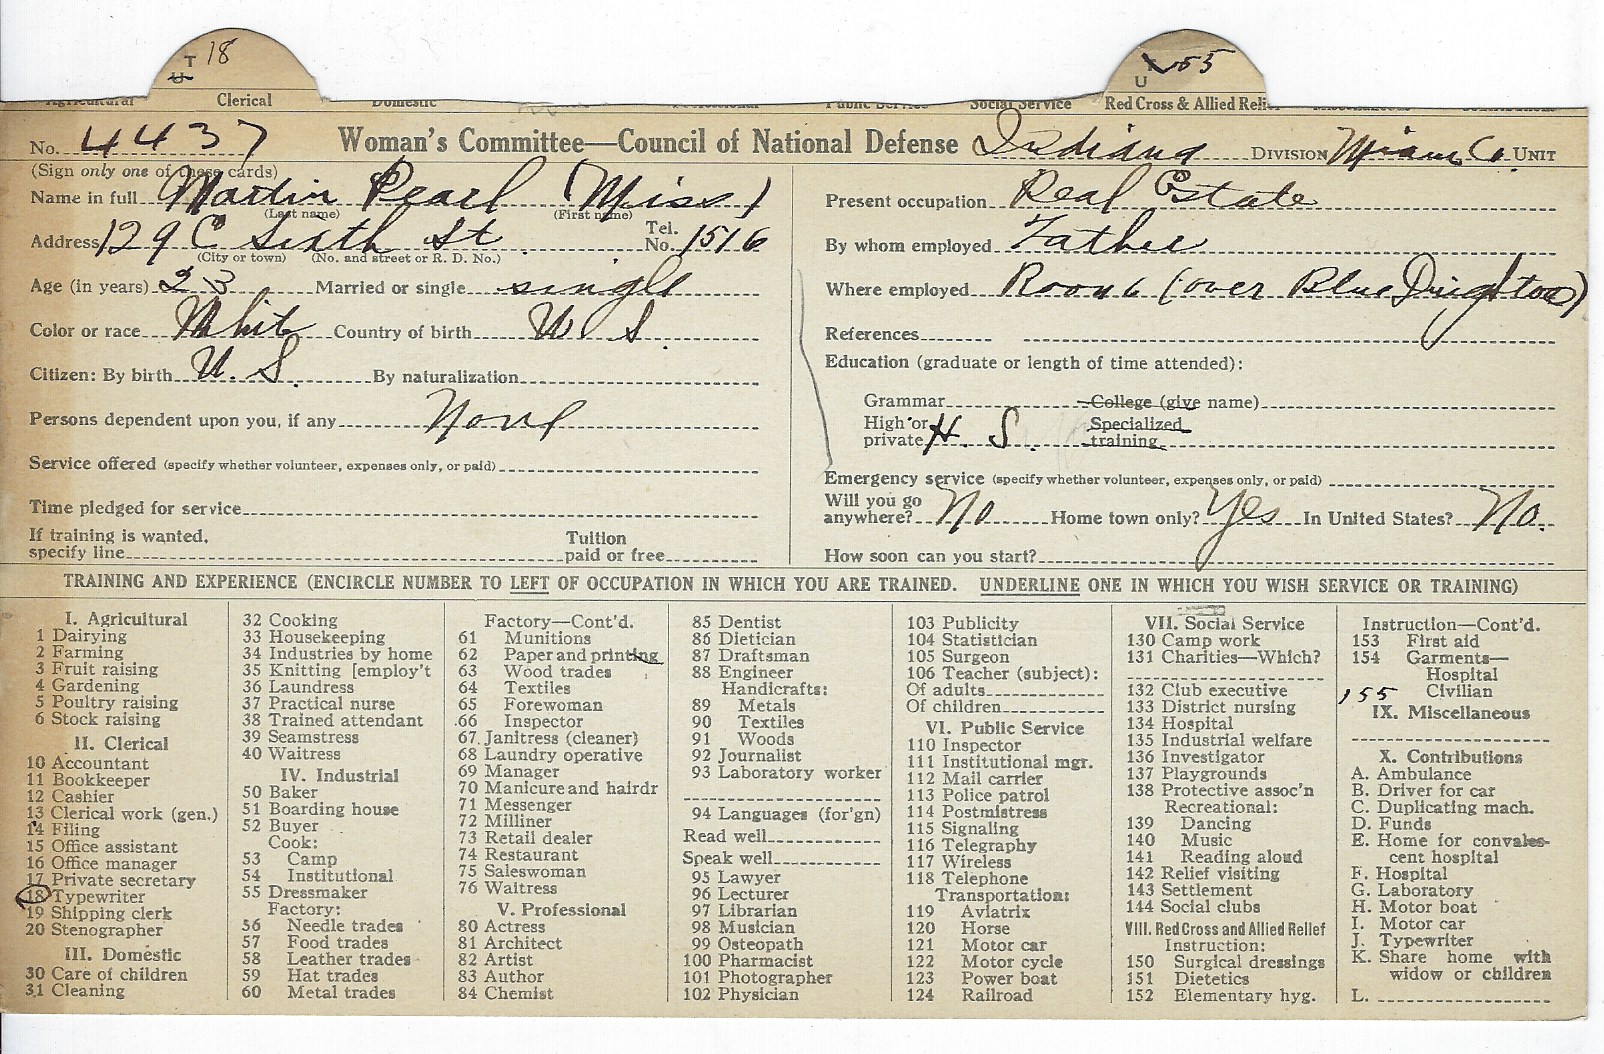 T 18
U
T 155
U
Agricultural Clerical Domestic Professional Public Service Social Service Red Cross & Allied Relief Miscellaneous Contributions
No. 4437 Woman's Committee—Council of National Defense Indiana DIVISION Miami Co. UNIT
(Sign only one of these cards)
Name in full Martin Pearl (Miss)
(Last name) (First name)
Address 129 E Sixth St. Tel. No. 1516
(City or town) (No. and street or R. D. No.)
Age (in years) 23 Married or single single
Color or race White Country of birth U S.
Citizen: By birth U. S. By naturalization
Persons dependent upon you, if any None
Service offered (specify whether volunteer, expenses only, or paid)
Time pledged for service
If training is wanted, specify line
Tuition paid or free
Present occupation Real Estate
By whom employed Father
Where employed Room 6 (over Blue Drug Store)
References
Education (graduate or length of time attended):
Grammar College (give name)
High or private H. S. Specialized training
Emergency service (specify whether volunteer, expenses only, or paid)
Will you go anywhere? No Home town only? Yes In United States? No.
How soon can you start?
TRAINING AND EXPERIENCE (ENCIRCLE NUMBER TO LEFT OF OCCUPATION IN WHICH YOU ARE TRAINED. UNDERLINE ONE IN WHICH YOU WISH SERVICE OR TRAINING)
I. Agricultural
1 Dairying
2 Farming
3 Fruit raising
4 Gardening
5 Poultry raising
6 Stock raising
II. Clerical
10 Accountant
11 Bookkeeper
12 Cashier
13 Clerical work (gen.)
14 Filing
15 Office assistant
16 Office manager
17 Private secretary
18 Typewriter
19 Shipping clerk
20 Stenographer
III. Domestic
30 Care of children
31 Cleaning
32 Cooking
33 Housekeeping
34 Industries by home
35 Knitting [employ't
36 Laundress
37 Practical nurse
38 Trained attendant
39 Seamstress
40 Waitress
IV. Industrial
50 Baker
51 Boarding house
52 Buyer
Cook:
53 Camp
54 Institutional
55 Dressmaker
Factory:
56 Needle trades
57 Food trades
58 Leather trades
59 Hat trades
60 Metal trades
Factory—Cont'd.
61 Munitions
62 Paper and printing
63 Wood trades
64 Textiles
65 Forewoman
66 Inspector
67 Janitress (cleaner)
68 Laundry operative
69 Manager
70 Manicure and hairdr
71 Messenger
72 Milliner
73 Retail dealer
74 Restaurant
75 Saleswoman
76 Waitress
V. Professional
80 Actress
81 Architect
82 Artist
83 Author
84 Chemist
85 Dentist
86 Dietician
87 Draftsman
88 Engineer
Handicrafts:
89 Metals
90 Textiles
91 Woods
92 Journalist
93 Laboratory worker
94 Languages (for'gn)
Read well
Speak well
95 Lawyer
96 Lecturer
97 Librarian
98 Musician
99 Osteopath
100 Pharmacist
101 Photographer
102 Physician
103 Publicity
104 Statistician
105 Surgeon
106 Teacher (subject):
Of adults
Of children
VI. Public Service
110 Inspector
111 Institutional mgr.
112 Mail carrier
113 Police patrol
114 Postmistress
115 Signaling
116 Telegraphy
117 Wireless
118 Telephone
Transportation:
119 Aviatrix
120 Horse
121 Motor car
122 Motor cycle
123 Power boat
124 Railroad
VII. Social Service
130 Camp work
131 Charities—Which?
132 Club executive
133 District nursing
134 Hospital
135 Industrial welfare
136 Investigator
137 Playgrounds
138 Protective assoc'n
Recreational:
139 Dancing
140 Music
141 Reading aloud
142 Relief visiting
143 Settlement
144 Social clubs
VIII. Red Cross and Allied Relief
Instruction:
150 Surgical dressings
151 Dietetics
152 Elementary hyg.
Instruction—Cont'd.
153 First aid
154 Garments—
Hospital
155 Civilian
IX. Miscellaneous
X. Contributions
A. Ambulance
B. Driver for car
C. Duplicating mach.
D. Funds
E. Home for convalescent hospital
F. Hospital
G. Laboratory
H. Motor boat
I. Motor car
J. Typewriter
K. Share home with widow or children
L.